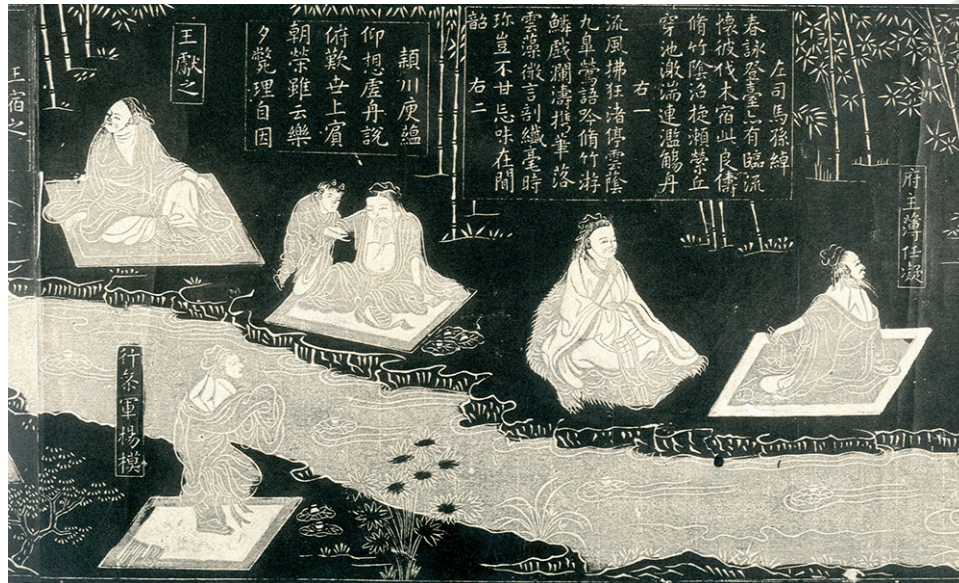 府主簿任凝
左司馬孫綽
春詠登臺亦有臨流
懷彼伐木宿此良儔
脩竹蔭沼旋瀨縈丘
穿池激湍連濫觴舟
右一
流風拂狂渚停雲蔭
九皐鶯語吟脩竹游
鱗戲瀾濤擕筆落
雲藻微言剖纖毫時
珍豈不甘忘味在聞
韶 右二
潁川庾蘊
仰想虛舟說
俯歎世上賓
朝榮雖云樂
夕斃理自因
王獻之
行叅軍楊模
王宿之